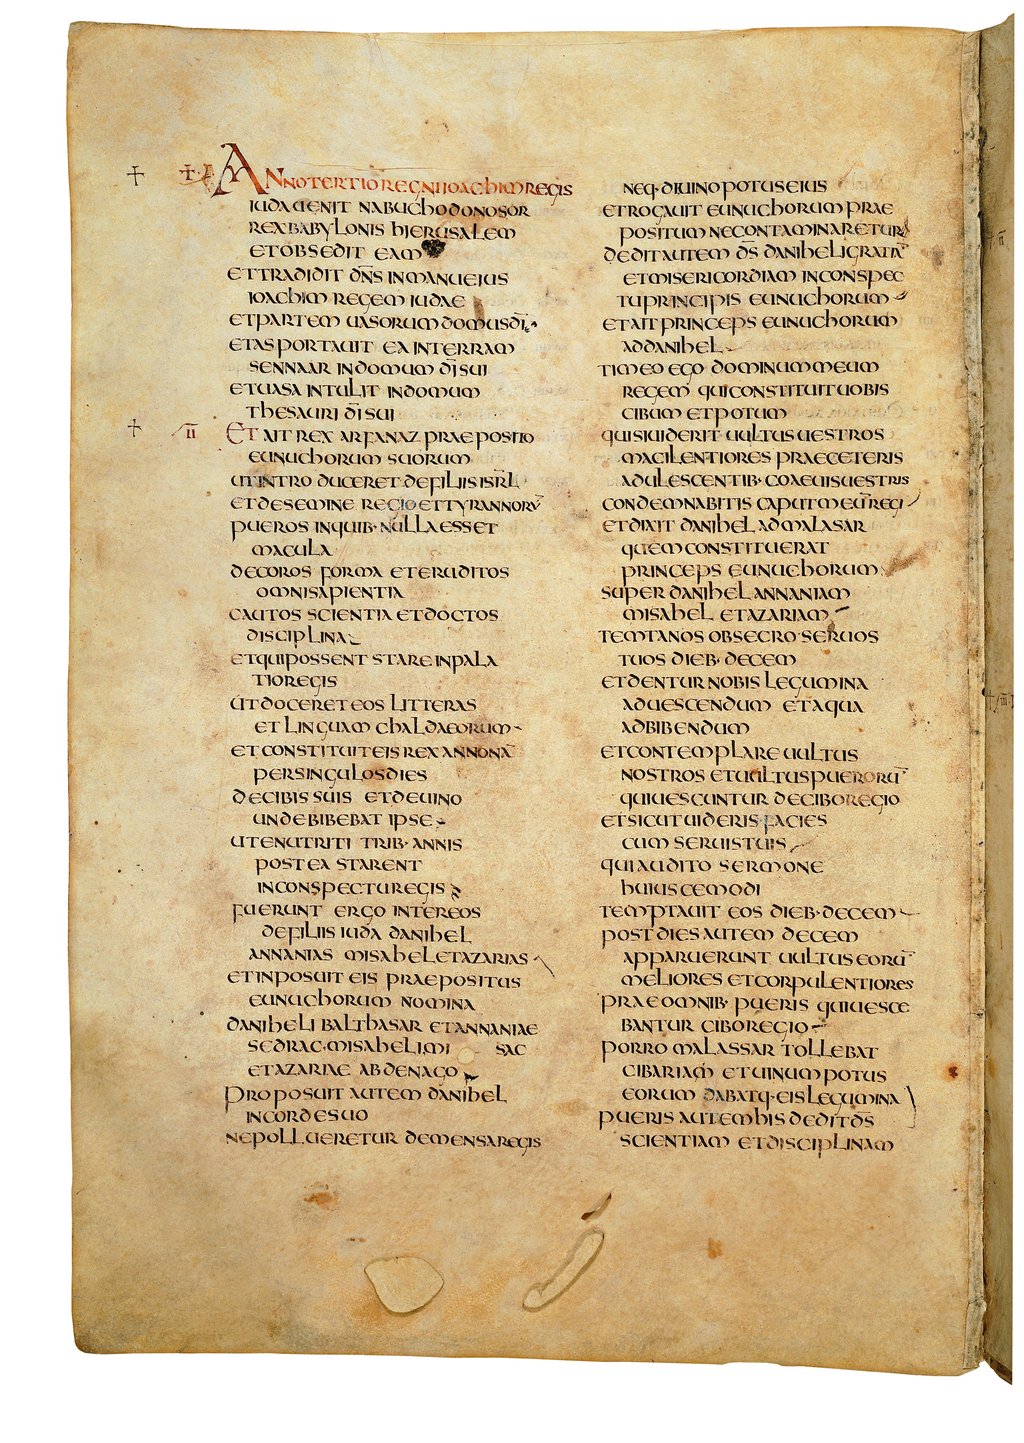 ANNO TERTIO REGNI IOACHIM REGIS
IUDA UENIT NABUCHODONOSOR
REX BABYLONIS HIERUSALEM
ET OBSEDIT EAM
ET TRADIDIT DN̄S IN MANU EIUS
IOACHIM REGEM IUDAE
ET PARTEM UASORUM DOMUS DĪ
ET ASPORTAUIT EA IN TERRAM
SENNAAR IN DOMUM DĪ SUI
ET UASA INTULIT IN DOMUM
THESAURI DĪ SUI
II ET AIT REX ARFANAZ PRAEPOSITO
EUNUCHORUM SUORUM
UT INTRODUCERET DE FILIIS ISRL̄
ET DE SEMINE REGIO ET TYRANNORŪ
PUEROS IN QUIB· NULLA ESSET
MACULA
DECOROS FORMA ET ERUDITOS
OMNI SAPIENTIA
CAUTOS SCIENTIA ET DOCTOS
DISCIPLINA
ET QUI POSSENT STARE IN PALA
TIO REGIS
UT DOCERET EOS LITTERAS
ET LINGUAM CHALDAEORUM
ET CONSTITUIT EIS REX ANNONĀ
PER SINGULOS DIES
DE CIBIS SUIS ET DE UINO
UNDE BIBEBAT IPSE
UT ENUTRITI TRIB· ANNIS
POSTEA STARENT
IN CONSPECTU REGIS
FUERUNT ERGO INTER EOS
DE FILIIS IUDA DANIHEL
ANNANIAS MISAHEL ET AZARIAS
ET INPOSUIT EIS PRAEPOSITUS
EUNUCHORUM NOMINA
DANIHELI BALTHASAR ET ANNANIAE
SEDRAC· MISAHELI MI SAC
ET AZARIAE ABDENAGO
PROPOSUIT AUTEM DANIHEL
IN CORDE SUO
NE POLLUERETUR DE MENSA REGIS
NEQ· DI UINO POTUS EIUS
ET ROGAUIT EUNUCHORUM PRAE
POSITUM NE CONTAMINARETUR
DEDIT AUTEM DS̄ DANIHELI GRATIĀ
ET MISERICORDIAM IN CONSPEC
TU PRINCIPIS EUNUCHORUM
ET AIT PRINCEPS EUNUCHORUM
AD DANIHEL
TIMEO EGO DOMINUM MEUM
REGEM QUI CONSTITUIT UOBIS
CIBUM ET POTUM
QUI SI UIDERIT UULTUS UESTROS
MACILENTIORES PRAE CETERIS
ADULESCENTIB· COAEUIS UESTRIS
CONDEMNABITIS CAPUT MEŪ REGI
ET DIXIT DANIHEL AD MALASAR
QUEM CONSTITUERAT
PRINCEPS EUNUCHORUM
SUPER DANIHEL ANNANIAM
MISAHEL ET AZARIAM
TEMTA NOS OBSECRO SERUOS
TUOS DIEB· DECEM
ET DENTUR NOBIS LEGUMINA
AD UESCENDUM ET AQUA
AD BIBENDUM
ET CONTEMPLARE UULTUS
NOSTROS ET UULTUS PUERORŪ
QUI UESCUNTUR DE CIBO REGIO
ET SICUT UIDERIS FACIES
CUM SERUIS TUIS
QUI AUDITO SERMONE
HUIUSCEMODI
TEMPTAUIT EOS DIEB· DECEM
POST DIES AUTEM DECEM
APPARUERUNT UULTUS EORŪ
MELIORES ET CORPULENTIORES
PRAE OMNIB· PUERIS QUI UESCE
BANTUR CIBO REGIO
PORRO MALASSAR TOLLEBAT
CIBARIAM ET UINUM POTUS
EORUM DABATQ· EIS LEGUMINA
PUERIS AUTEM HIS DEDIT DS̄
SCIENTIAM ET DISCIPLINAM